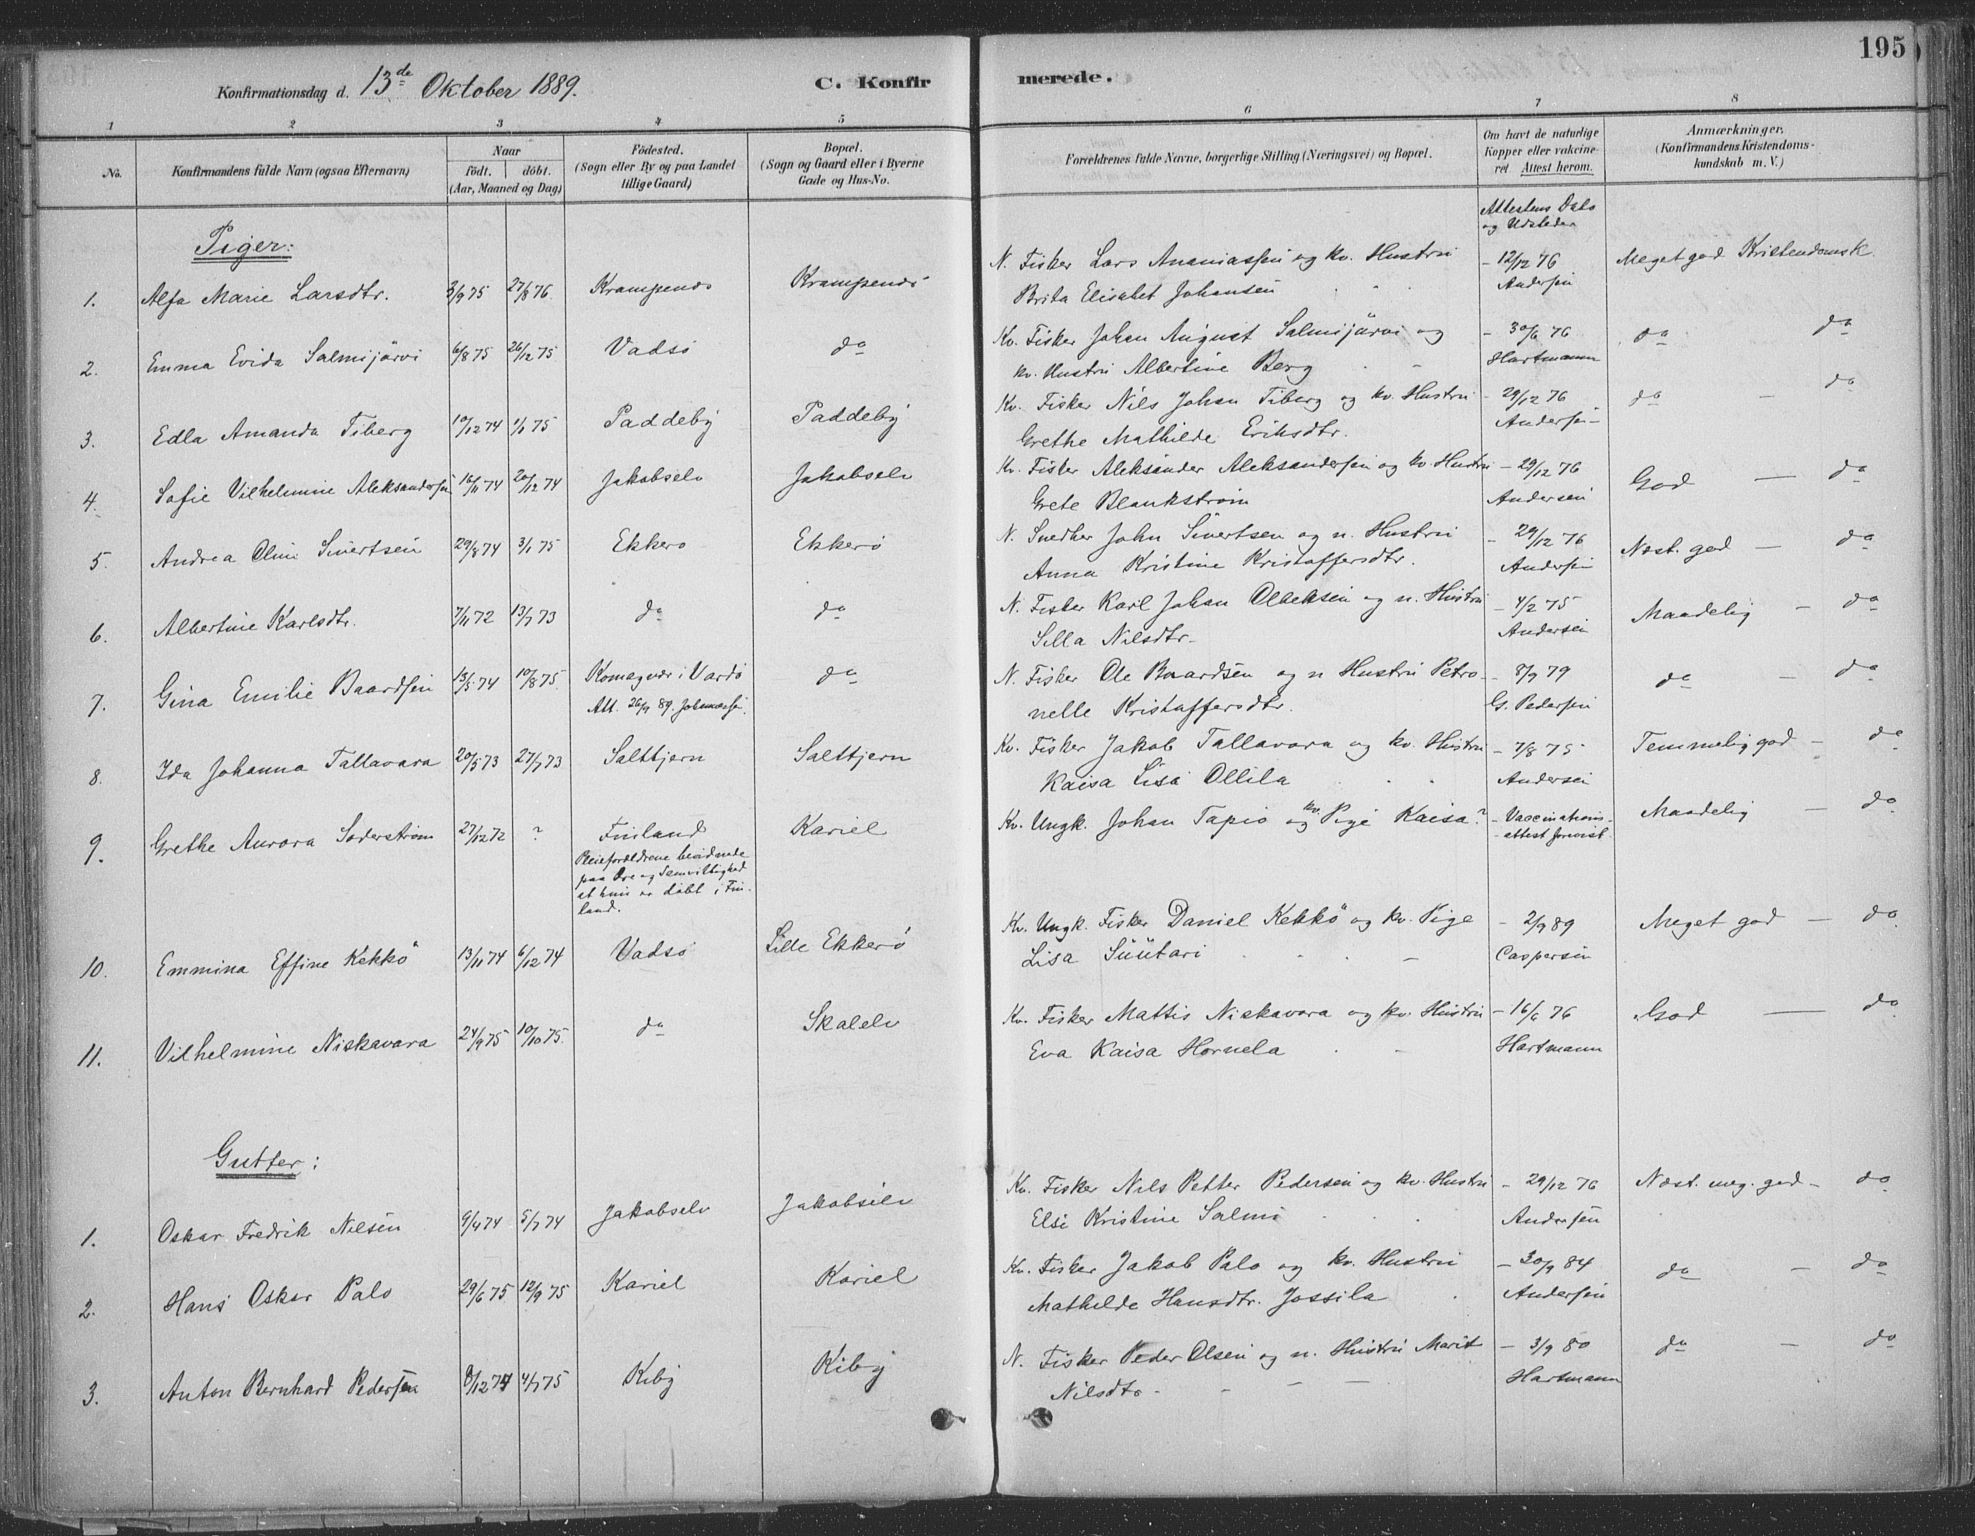 195
Konfirmationsdag d. 13de Oktober 1889.
C. Konfirmerede.
1 2 3 4 5 6 7 8
No.
Konfirmandens fulde Navn (ogsaa Efternavn)
Naar
födt. döbt.
(Aar, Maaned og Dag)
Födested.
(Sogn eller By og paa Landet
tillige Gaard)
Bopæl.
(Sogn og Gaard eller i Byerne
Gade og Hus-No.
Forældrenes fulde Navne, borgerlige Stilling (Næringsvei) og Bopæl.
Om havt de naturlige
Kopper eller vakcine-
ret. Attest herom.
Anmærkninger.
(Konfirmandens Kristendoms-
kundskab m. V.)
Attestens Dato
og Udsteder
Piger:
1. Alfa Marie Larsdtr. 3/9 75 27/8 76 Krampenes Krampenes N. Fisker Lars Ananiassen og kv. Hustru - 12/12 76 Meget god Kristendomsk.
Brita Elisabet Johansen Andersen
2. Emma Evida Salmijärvi 6/8 75 26/12 75 Vadsö do Kv. Fisker Johan August Salmijärvi og - 30/6 76 do do
kv. Hustru Albertine Berg Hartmann
3. Edla Amanda Tiberg 10/12 74 1/1 75 Paddeby Paddeby Kv. Fisker Nils Johan Tiberg og kv Hustru - 29/12 76 do - do
Grethe Mathilde Eriksdtr. Andersen
4. Sofie Vilhelmine Aleksandersen 16/11 74 20/12 74 Jakobselv Jakobselv Kv. Fisker Aleksander Aleksandersen og kv. Hustru - 29/12 76 God - do
Grete Blankström Andersen
5. Andrea Oline Sivertsen 29/8 74 3/1 75 Ekkerö Ekkerö N. Snedker John Sivertsen og n. Hustru - 29/12 76 Næst. god - do
Anna Kristine Kristoffersdtr. Andersen
6. Albertine Karlsdtr. 7/11 72 13/7 73 do do N. Fisker Karl Johan Olbeksen og n. Hustru - 4/2 75 Maadelig - do
Silla Nilsdtr. Andersen
7. Gina Emilie Baardsen 13/5 74 10/8 75 Komagvær i Vardö do N. Fisker Ole Baardsen og n Hustru Petro- - 8/9 79 do - do
Att. 26/9 89. nelle Kristoffersdtr. G. Pedersen
8. Ida Johanna Tallavara 20/5 73 27/7 73 Saltbjern Saltbjern Kv. Fisker Jakob Tallavara og kv. Hustru - 7/8 75 Temmelig god - do
Kaisa Lisa Ollila Andersen
9. Grethe Aurora Söderström 27/12 72 ? Finland Kariel Kv. Ungk. Johan Tapio og kv. Pige Kaisa? - Vaccinations- Maadelig - do
attest forevist.
Pleieforældrene bevidnede
paa Ære og Samvittighed
at hun er döbt i Fin-
land.
10. Emmina Effine Kekkö 13/11 74 6/12 74 Vadsö Lille Ekkerö Kv. Ungk. Fisker Daniel Kekkö og kv. Pige - 2/9 89 Meget god - do
Lisa Süütari Caspersen
11. Vilhelmine Niskavara 24/9 75 10/10 75 do Skalelv Kv. Fisker Mattis Niskavara og kv. Hustru - 16/6 76 God - do
Eva Kaisa Hornela Hartmann
Gutter:
1. Oskar Fredrik Nilsen 9/4 74 5/7 74 Jakobselv Jakobselv Kv. Fisker Nils Petter Pedersen og kv. Hustru - 29/12 76 Næst. meg. god - do
Elsi Kristine Salmi Andersen
2. Hans Oskar Palo 29/6 75 12/9 75 Kariel Kariel Kv. Fisker Jakob Palo og kv. Hustru - 30/9 84 do - do
Mathilde Hansdtr. Jossila Andersen
3. Anton Bernhard Pedersen 8/12 74 4/7 75 Kiby Kiby N. Fisker Peder Olsen og n. Hustru Marit - 3/9 80 do - do
Nilsdtr. Hartmann